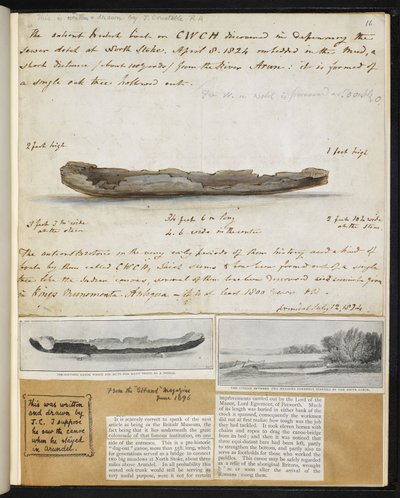 This is written & drawn by J. Constable R.A
16
The antient British boat or CWCH discovered in deepening the
sewer dotal at North Stoke, April 8. 1824 embedded in the Mud, a
short distance (about 100 yards) from the River Arun: it is formed of
a single oak tree hollowed out.
2 feet high
1 foot high
3 feet
at the stern
34 feet 6 in long
4. 6 wide in the centre
2 feet 10 in wide
at the stem
The antient Britons in the very early periods of their history used a kind of
boats by them called CWCH, which seems to have been formed out of a single
tree like the Indian canoes, several of them have been discovered
in King's Munimenta Antiqua - it is at least 1800 years old -
July 12, 1834
From the "Strand" Magazine
June 1896
This was written
and drawn by
J. C. I suppose
he saw the canoe
when he stayed
in Arundel.
It is scarcely correct to speak of the next
article as being in the British Museum, the
fact being that it lies underneath the great
colonnade of that famous institution, on one
side of the entrance. This is a pre-historic
"dug-out" canoe, more than 35ft. long, which
for generations served as a bridge to connect
two big meadows at North Stoke, about three
miles above Arundel. In all probability this
seated oak would still be serving its
very useful purpose, were it not for certain
improvements carried out by the Lord of the
Manor, Lord Egremont, of Petworth. When
of its length was buried in either bank of the
creek it spanned, consequently the workmen
did not at first realise how tough was the job
they had tackled. It took eleven horses with
chains and ropes to drag the canoe-bridge
from its bed; and then it was noticed that
three equi-distant bars had been left, partly
to strengthen the boat, and partly also to
serve as footholds for those who worked the
paddles. This canoe may be safely regarded
as a relic of the aboriginal Britons, wrought
or soon after the arrival of the
among them.